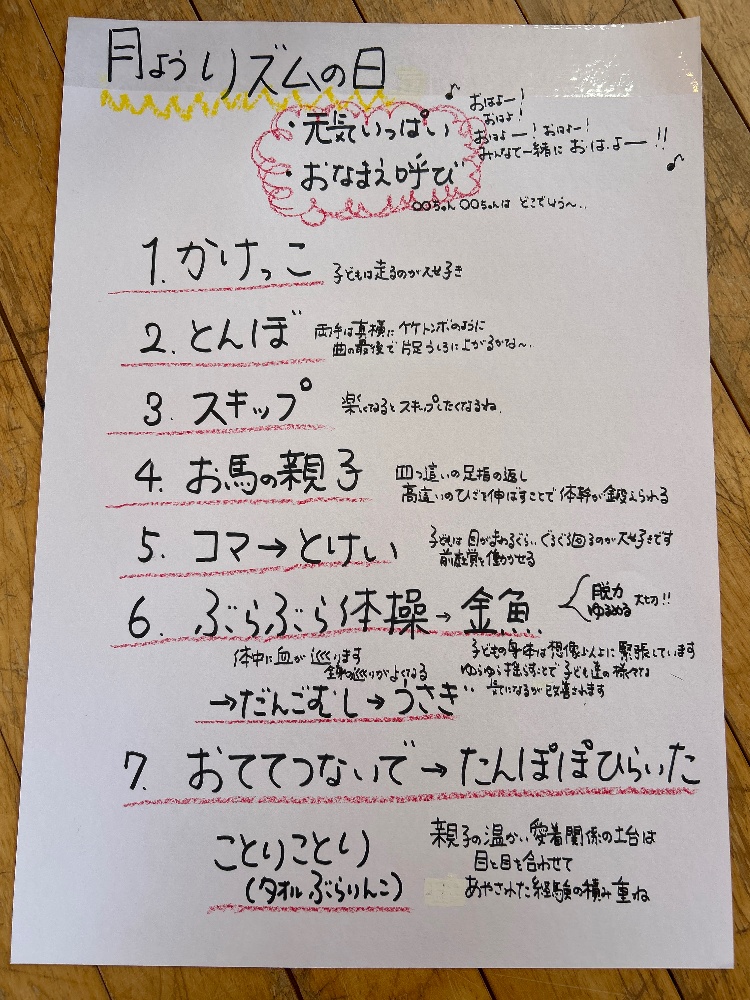 月ようリズムの日
・元気いっぱい
・おなまえ呼び
♪ おはよー!
おはよ!
おはよー!おはよー!
みんなで一緒に おは.よー!! ♪
〇〇ちゃん 〇〇ちゃんは どこでしょう〜..
1. かけっこ 子どもは走るのが大好き
2. とんぼ 両手は真横に ケケトンボのように
曲の最後で 片足うしろに上がるかな〜.
3. スキップ 楽しくなると スキップしたくなるね.
4. お馬の親子 四つ這いの足指の返し
高這いのひざを伸ばすことで 体幹が鍛えられる
5. コマ→とけい 子どもは目がまわるぐらい ぐるぐる回るのが大好きです
前庭覚を働かせる
6. ぶらぶら体操→金魚. 脱力 ゆるめる 大切!!
体中に血が巡ります
巡りがよくなる
子どもの身体は想像以上に緊張しています
ゆらゆら揺らすことで子ども達の様々な
になるが改善されます
→だんごむし→うさぎ
7. おててつないで→たんぽぽひらいた
ことりことり
(タオルぶらりんこ)
親子の温かい愛着関係の土台は
目と目を合わせて
あやされた経験の積み重ね